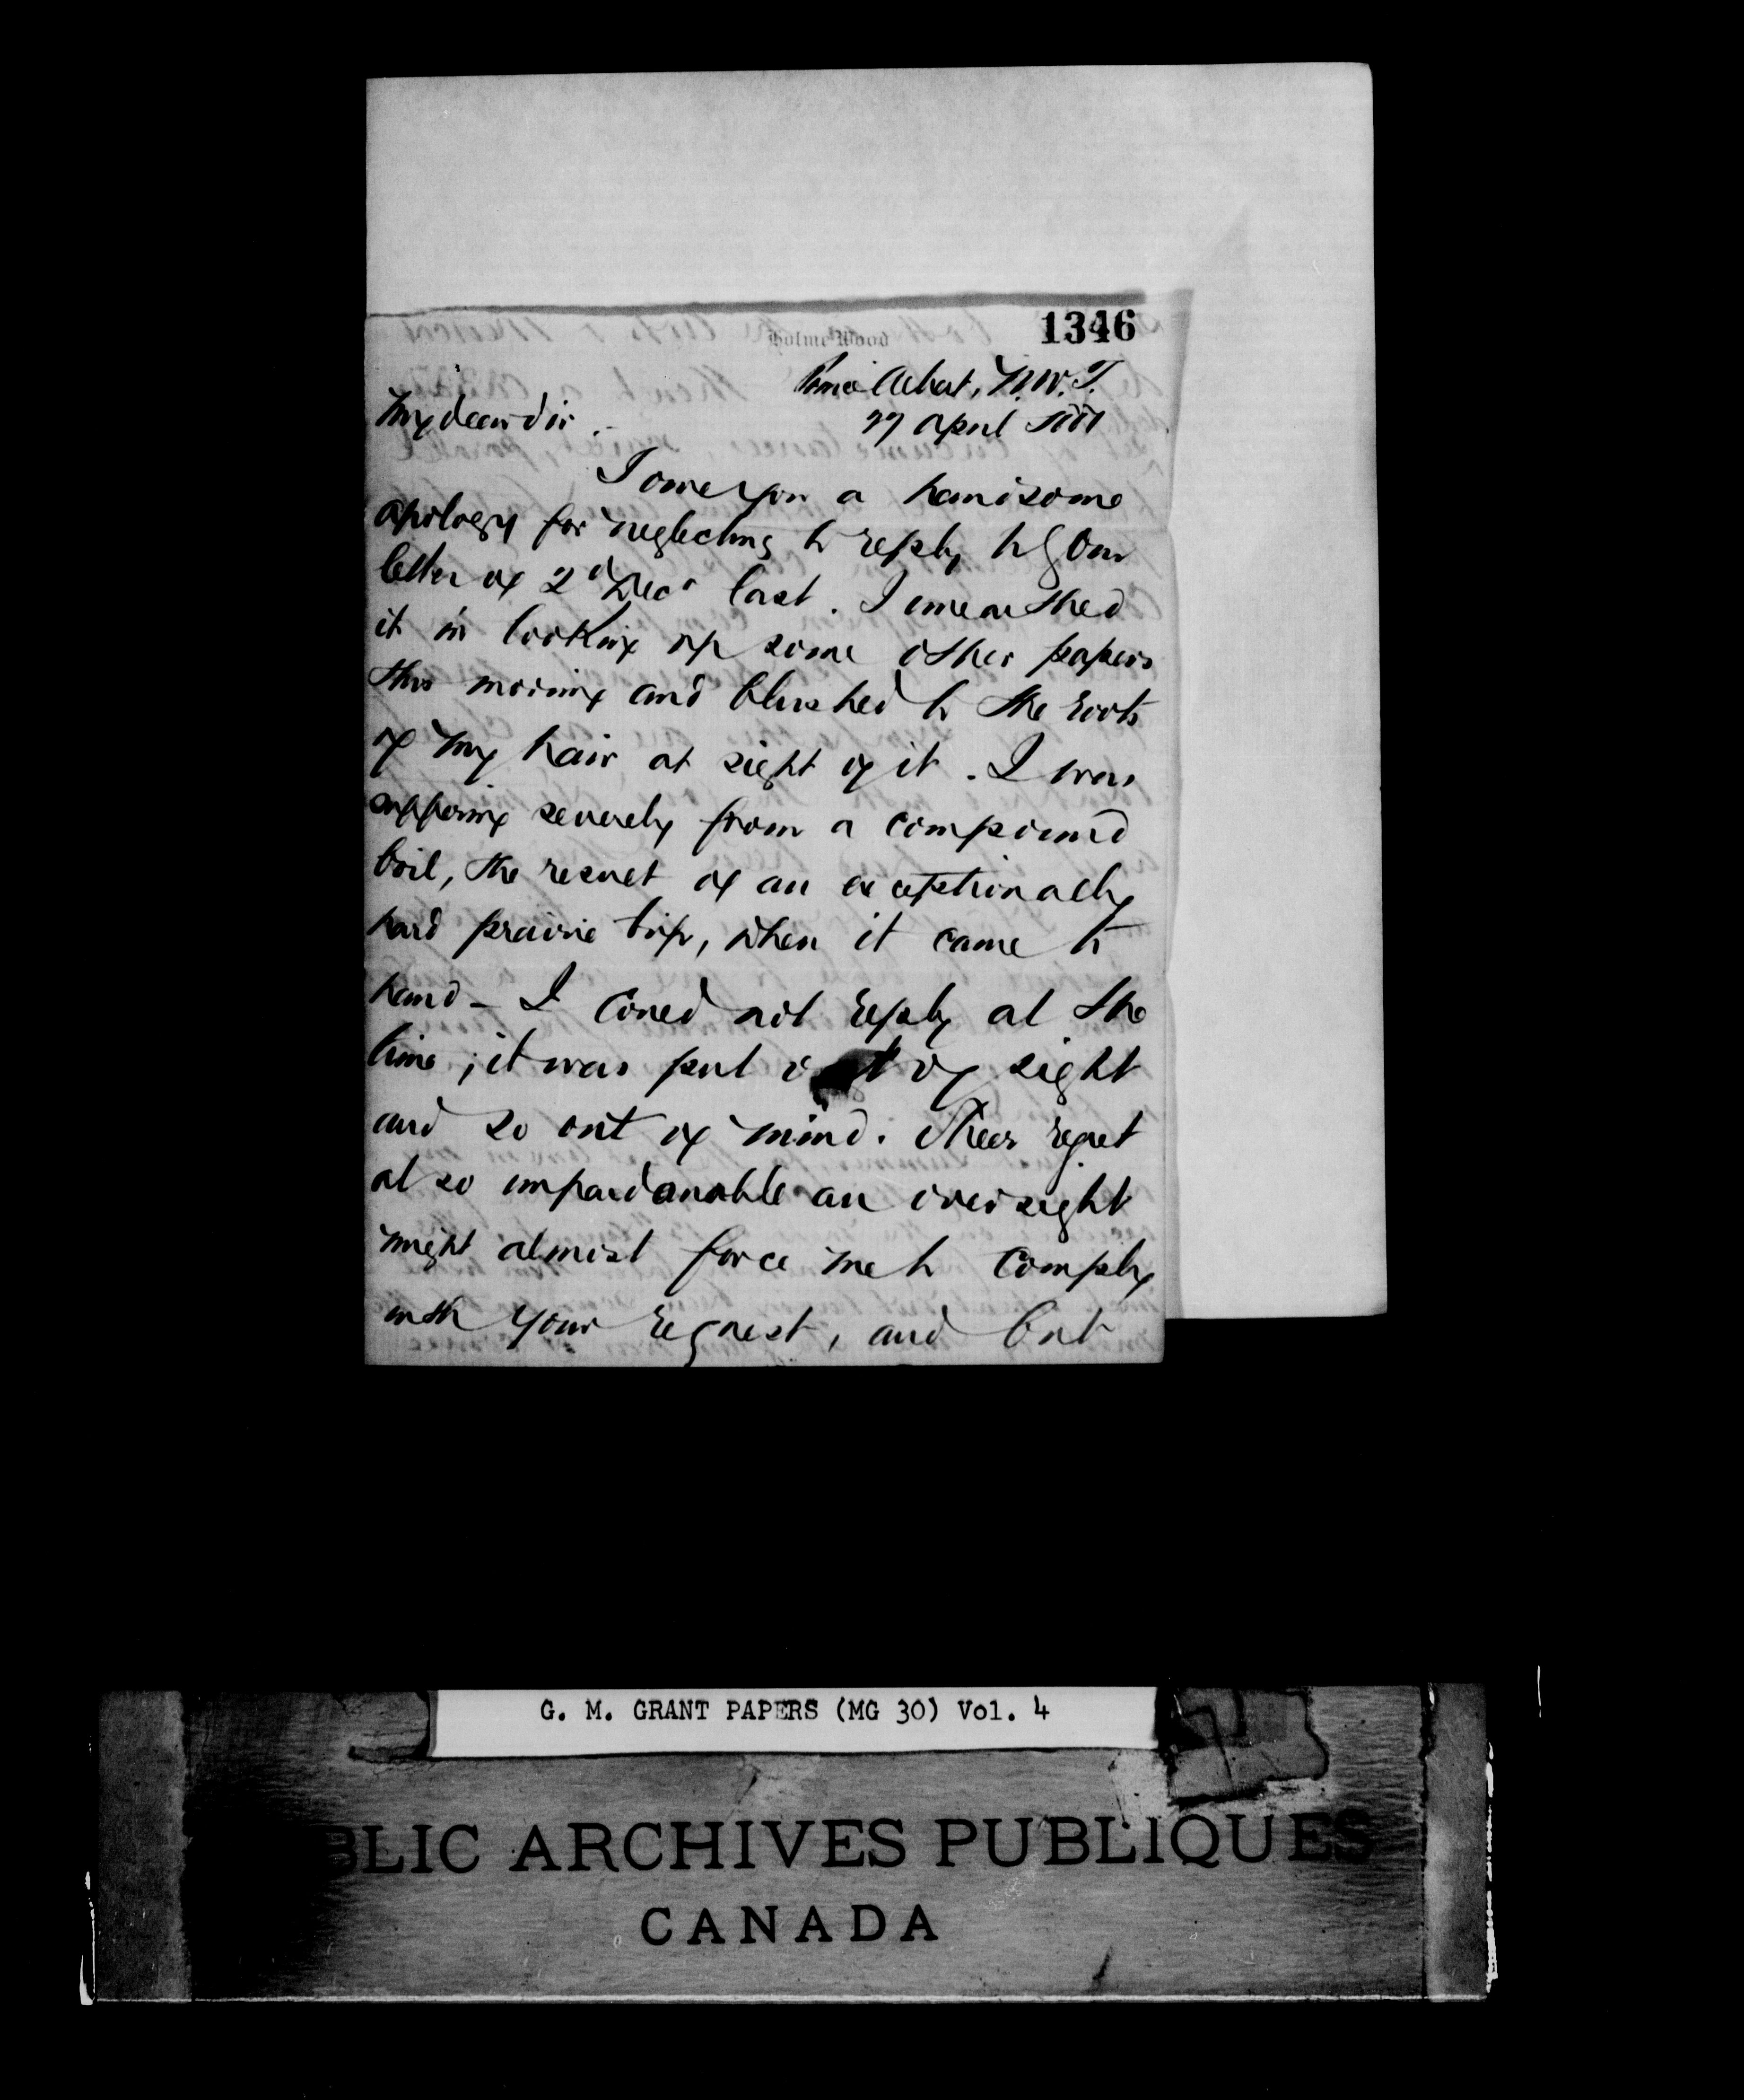 1346
HolmeWood
Prince Albert, N.W.T.
27 April 1881
My dear Sir.
I owe you a handsome
apology for neglecting to reply to your
letter of 2d Decr last. I unearthed
it in looking up some other papers
this morning and blushed to the roots
of my hair at sight of it. I was
suffering severely from a compound
boil, the result of an exceptionally
hard prairie trip, when it came to
hand - I could not reply at the
time; it was put out of sight
and so out of mind. Sheer regret
at so unpardonable an oversight
might almost force me to comply
with your request, and but
G. M. GRANT PAPERS (MG 30) Vol. 4
BLIC ARCHIVES PUBLIQUES
CANADA